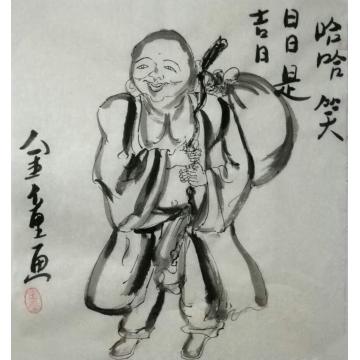 哈哈笑
日日是
吉日
金重画